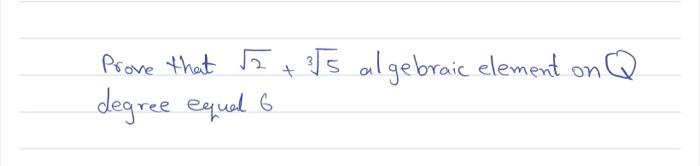 Prove that √2 + ∛5 algebraic element on Q
degree equal 6